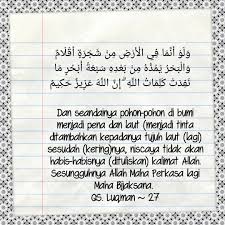 وَلَوْ أَنَّمَا فِي الْأَرْضِ مِنْ شَجَرَةٍ أَقْلَامٌ
وَالْبَحْرُ يَمُدُّهُ مِنْ بَعْدِهِ سَبْعَةُ أَبْحُرٍ مَا
نَفِدَتْ كَلِمَاتُ اللَّهِ ۗ إِنَّ اللَّهَ عَزِيزٌ حَكِيمٌ
Dan seandainya pohon-pohon di bumi
menjadi pena dan laut (menjadi tinta)
ditambahkan kepadanya tujuh laut (lagi)
sesudah (kering)nya, niscaya tidak akan
habis-habisnya (dituliskan) kalimat Allah.
Sesungguhnya Allah Maha Perkasa lagi
Maha Bijaksana.
QS. Luqman ~ 27